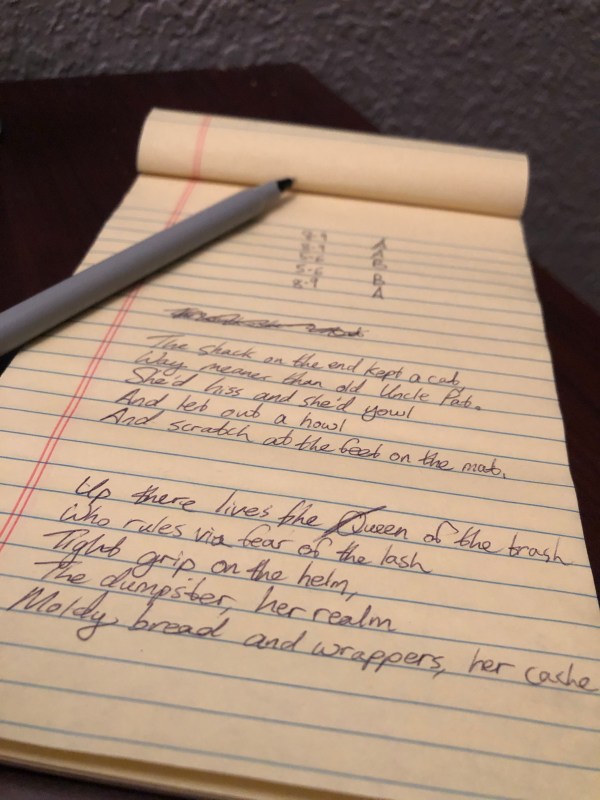 8-9 A
8-9 A
5-6 B
5-6 B
8-9 A
The shack on the end kept a cat,
Way meaner than old Uncle Pat.
She'd hiss and she'd yowl
And let out a howl
And scratch at the feet on the mat.
Up there lives the Queen of the trash
Who rules via fear of the lash
Tight grip on the helm,
The dumpster, her realm
Moldy bread and wrappers, her cache